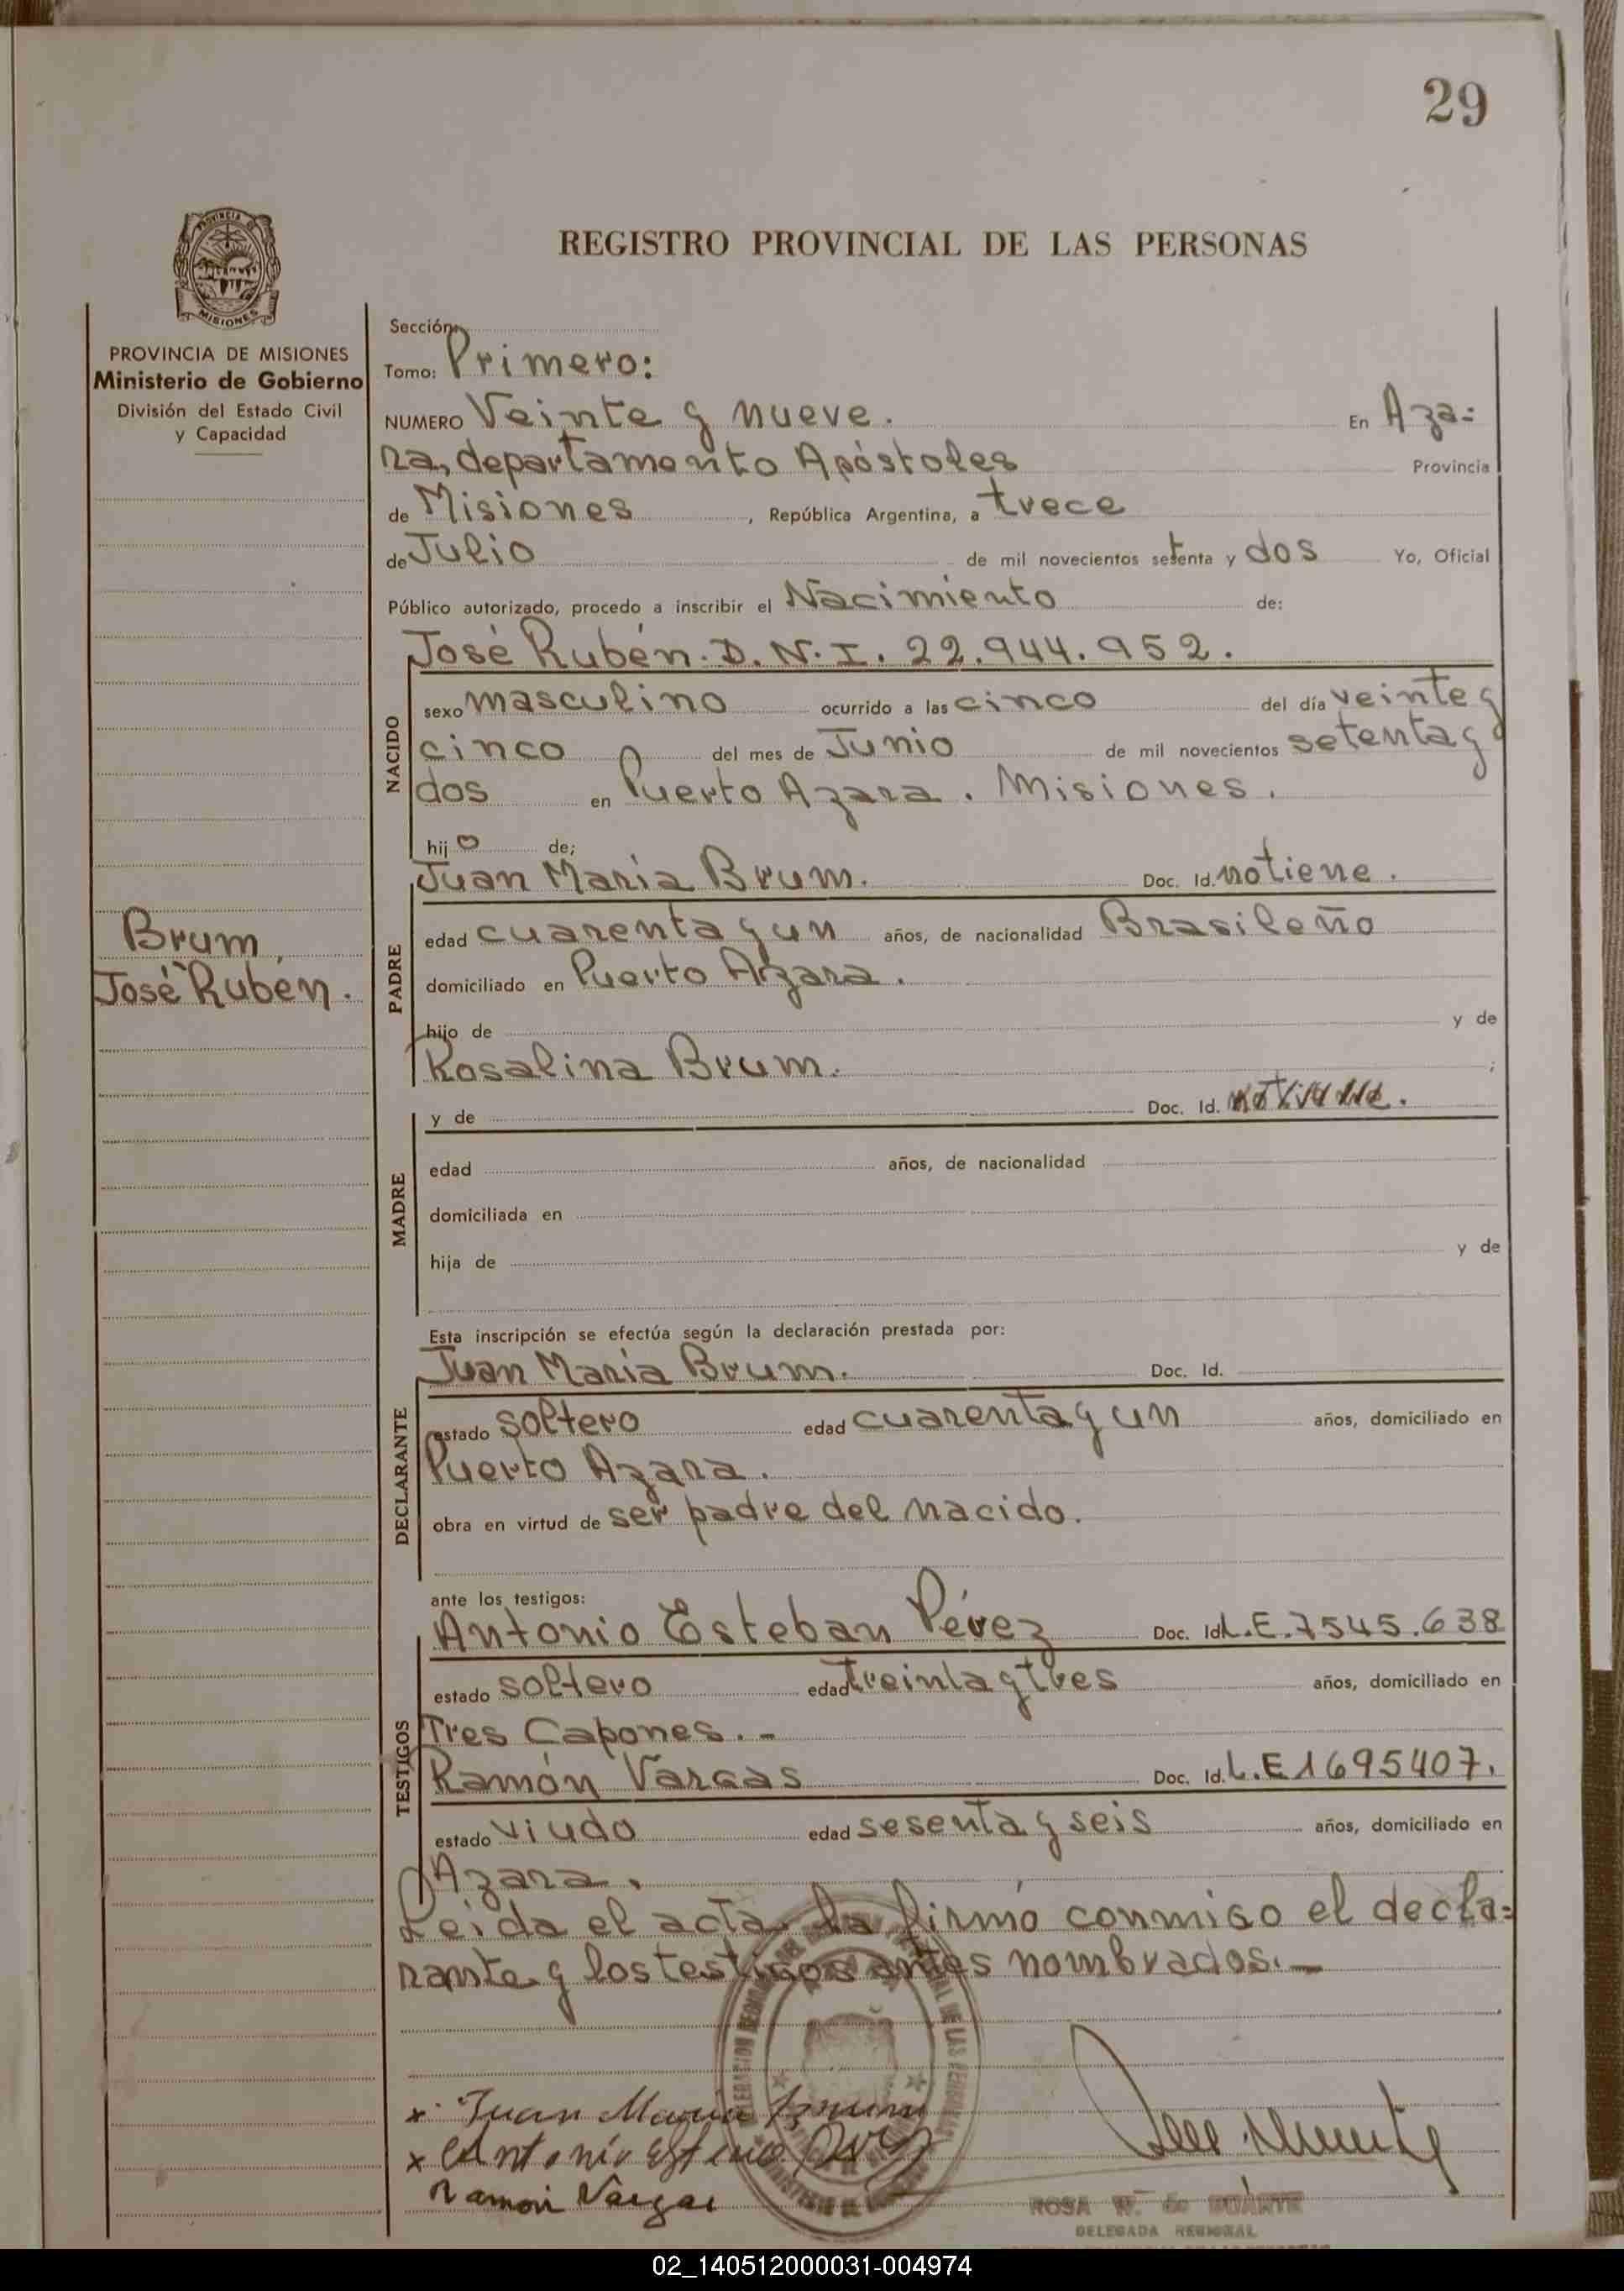 29
PROVINCIA DE
MISIONES
REGISTRO PROVINCIAL DE LAS PERSONAS
PROVINCIA DE MISIONES
Ministerio de Gobierno
División del Estado Civil
y Capacidad
Brum,
José Rubén.
Sección:
Tomo: Primero:
NUMERO Veinte y nueve. En Aza=
ra, departamento Apóstoles Provincia
de Misiones, República Argentina, a trece
de Julio de mil novecientos setenta y dos Yo, Oficial
Público autorizado, procedo a inscribir el Nacimiento de:
José Rubén. D.N.I. 22.944.952.
NACIDO
sexo masculino ocurrido a las cinco del día veinte y
cinco del mes de Junio de mil novecientos setenta y
dos en Puerto Azara. Misiones.
hijo de;
Juan María Brum. Doc. Id. no tiene.
PADRE
edad cuarenta y un años, de nacionalidad Brasileño
domiciliado en Puerto Azara.
hijo de y de
Rosalina Brum. ;
y de Doc. Id.
MADRE
edad años, de nacionalidad
domiciliada en
hija de y de
Esta inscripción se efectúa según la declaración prestada por:
Juan María Brum. Doc. Id.
DECLARANTE
estado soltero edad cuarenta y un años, domiciliado en
Puerto Azara.
obra en virtud de ser padre del nacido.
ante los testigos:
Antonio Esteban Pérez Doc. Id L.E. 7545.638
TESTIGOS
estado soltero edad treinta y tres años, domiciliado en
Tres Capones.-
Ramón Vargas Doc. Id. L.E 1695407.
estado viudo edad sesenta y seis años, domiciliado en
Azara.
Leída el acta, la firmó conmigo el decla=
rante y los testigos antes nombrados.-
x Juan Maria Brum
x Antonio
Ramon Vargas
ROSA W. de DUARTE
DELEGADA REGIONAL
02_140512000031-004974